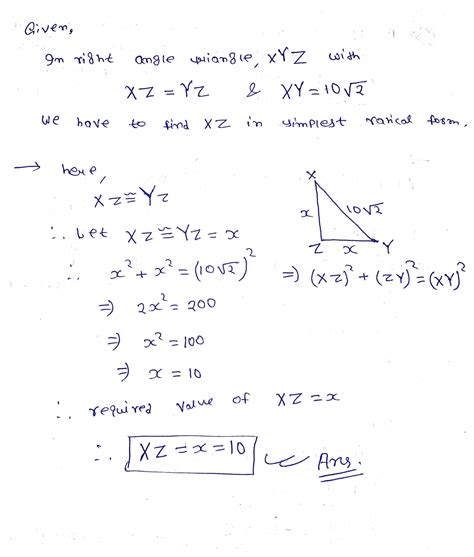 Given,
In right angle triangle, XYZ with
XZ = YZ & XY = 10√2
We have to find XZ in simplest radical form.
→ here,
XZ ≅ YZ
∴ Let XZ ≅ YZ = x
∴ x² + x² = (10√2)²
⇒ (XZ)² + (ZY)² = (XY)²
⇒ 2x² = 200
⇒ x² = 100
⇒ x = 10
∴ required value of XZ = x
∴ XZ = x = 10 Ans.
X
x 10√2
Z x Y